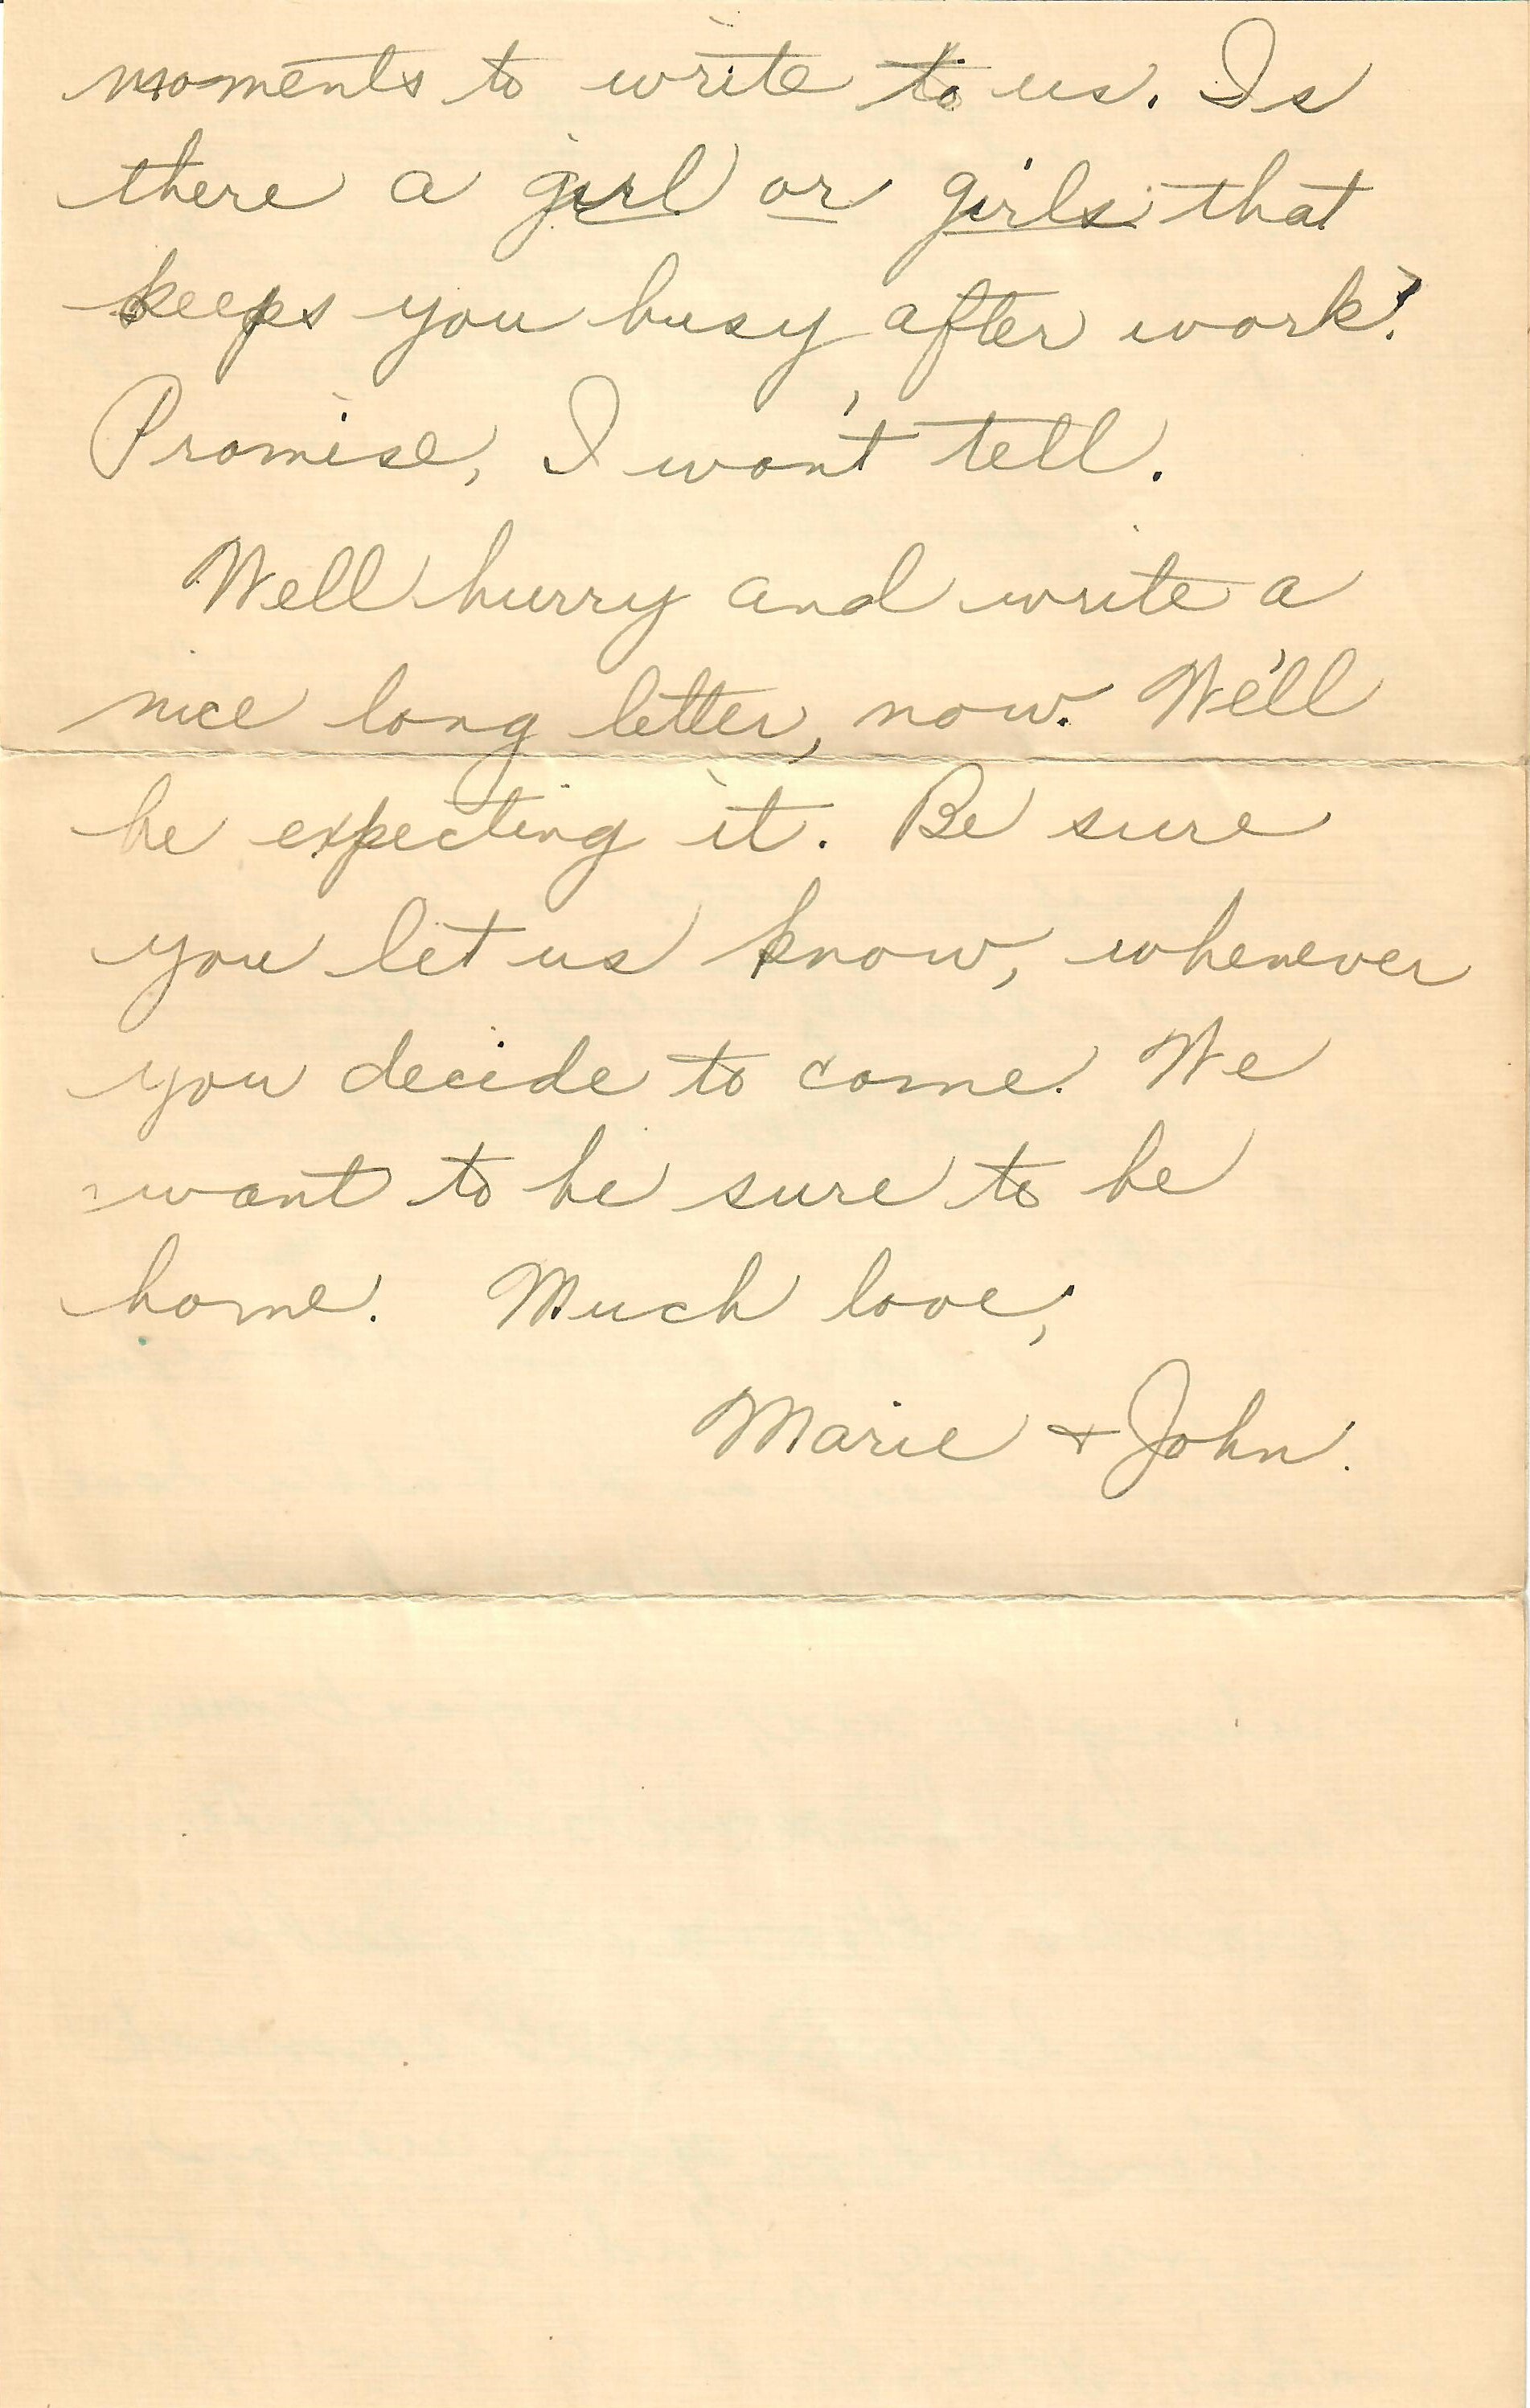 moments to write to us. Is
there a girl or girls that
keeps you busy after work?
Promise, I won't tell.
Well hurry and write a
nice long letter, now. We'll
be expecting it. Be sure
you let us know, whenever
you decide to come. We
want to be sure to be
home. Much love,
Marie + John.